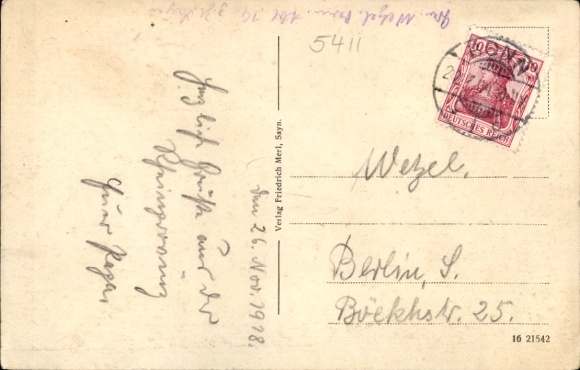 5411
BONN
DEUTSCHES REICH
den 26. Nov. 1918.
Herzliche Grüße aus der
Euer
Verlag Friedrich Merl, Sayn.
Wetzel.
Berlin, S.
Böckhstr. 25.
16 21542